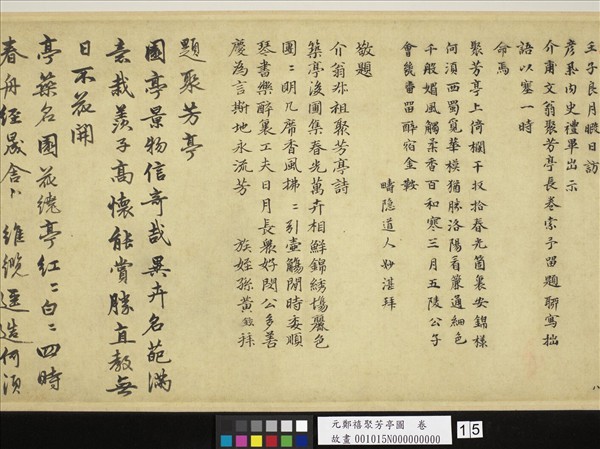 壬子良月暇日訪
彥昇內史禮畢出示
介甫文翁聚芳亭長卷索予留題聊寫拙
語以塞一時
命焉
聚芳亭上倚欄干收拾春光
安錦樣
何須西蜀覓華模猶勝洛陽看
通細色
千般媚風觸柔香百和寒三月五陵公子
會幾番留醉宿金鞍
疇隱道人妙湛拜
敬題
介翁外祖聚芳亭詩
築亭後圃集春光萬卉相鮮錦繡
色
團團明几席香風拂拂引壺觴閒時委順
琴書樂醉裏工夫日月長最好閱公多善
慶為言斯地永流芳
族姪孫黃
拜
題聚芳亭
園亭景物信奇哉異卉名葩滿
意栽羨子高懷能賞勝直教無
日不花開
亭築名園花繞亭紅紅白白四時
春舟經晟舍卜維纜逕造何須
元鄭禧聚芳亭圖 卷
故畫 001015N000000000
15
八